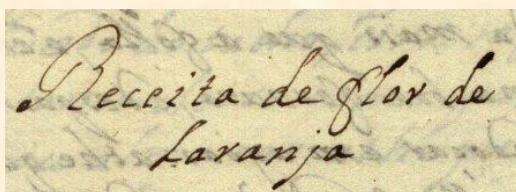 Receita de flor de
Laranja